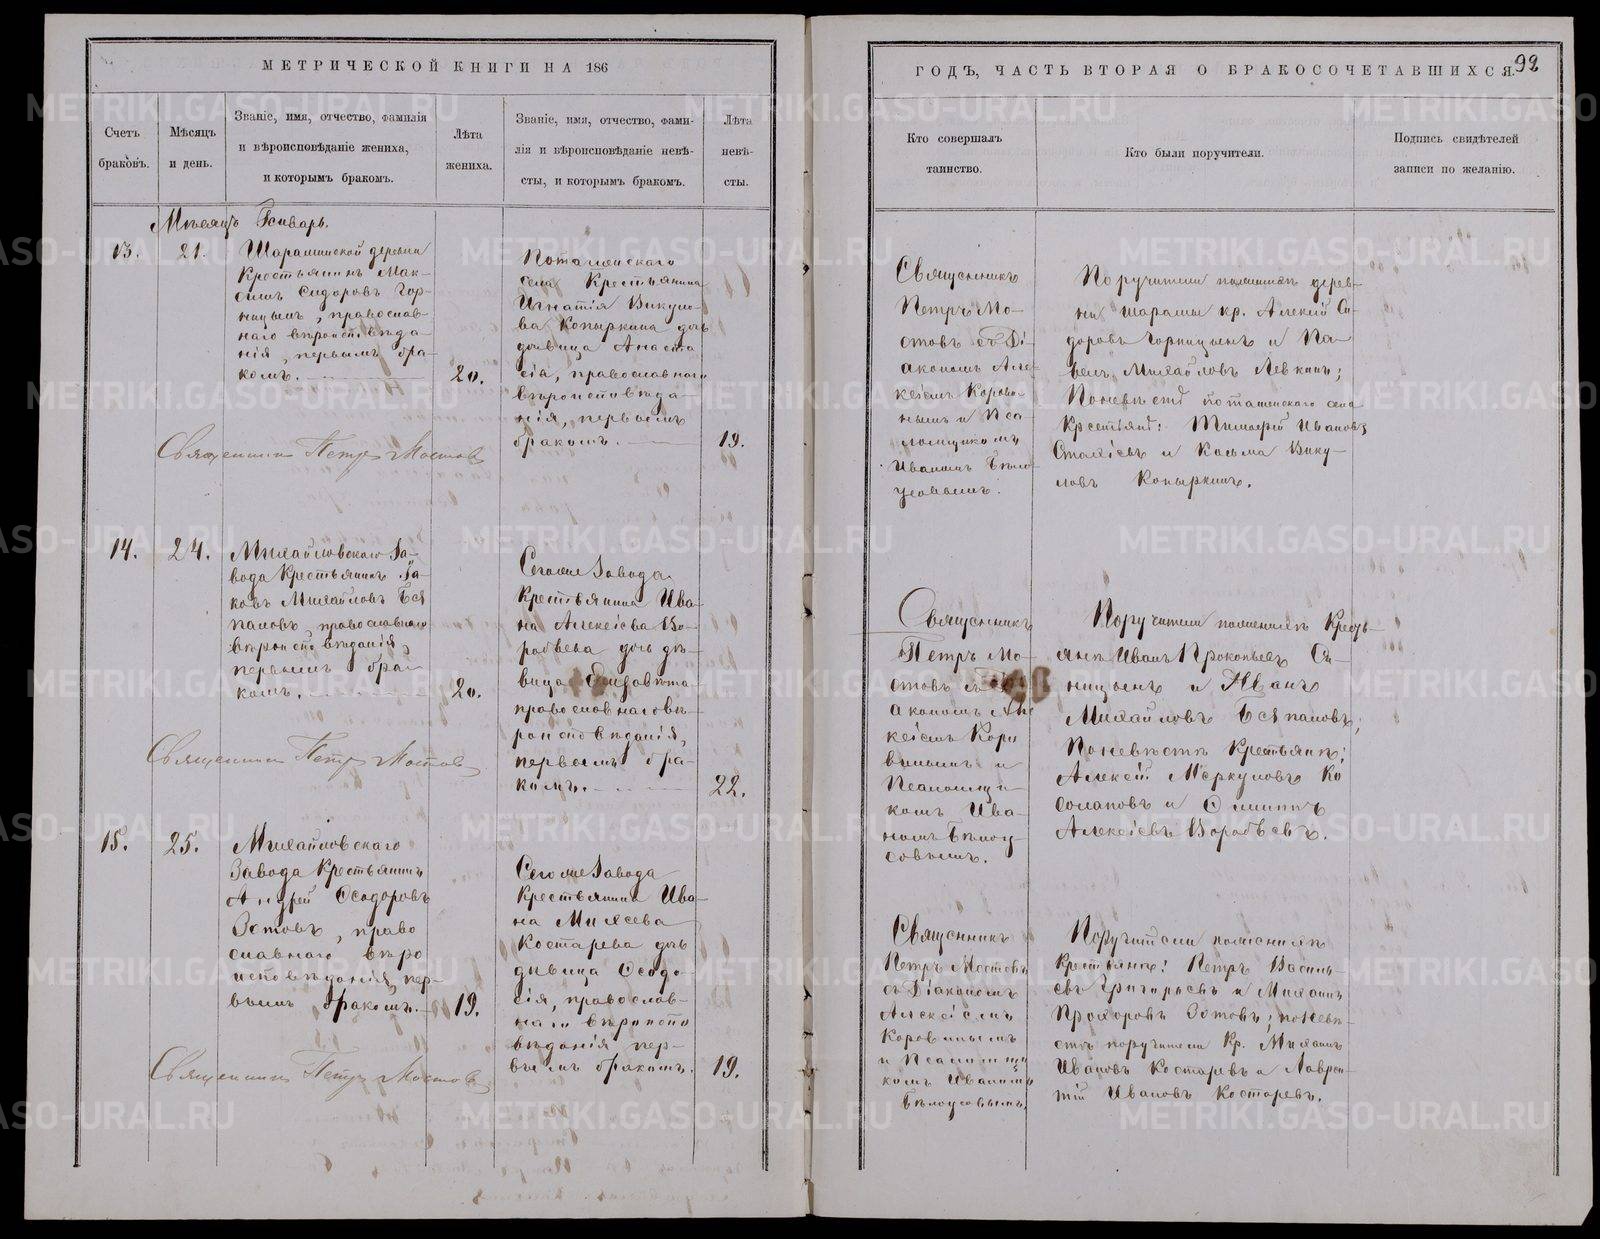 МЕТРИЧЕСКОЙ КНИГИ НА 186
Счетъ браковъ.
Мѣсяцъ и день.
Званіе, имя, отчество, фамилія
и вѣроисповѣданіе жениха,
и которымъ бракомъ.
Лѣта жениха.
Званіе, имя, отчество, фами-
лія и вѣроисповѣданіе невѣ-
сты, и которымъ бракомъ.
Лѣта невѣ-
сты.
Мѣсяцъ Январь.
13.
21.
Шарашинской деревни
Крестьянинъ Мак-
симъ Сидоровъ Гор-
ницынъ, православ-
наго вѣроисповѣда-
нія, первымъ бра-
комъ.
20.
Поташенскаго
села Крестьянина
Игнатія Викуло-
ва Копыркина дочь
дѣвица Анаста
сія, православнаго
вѣроисповѣда-
нія, первымъ
бракомъ.
19.
Священникъ Петръ Мостовъ
14.
24.
Михайловскаго За-
вода Крестьянинъ Я-
ковъ Михайловъ Бея
паловъ, православнаго
вѣроисповѣданія,
первымъ бра-
комъ.
20.
Сегоже Завода
Крестьянина Ива-
на Алексіева Во-
робьева дочь дѣ-
вица Елизавета
православнаго вѣ-
роисповѣданія,
первымъ бра-
комъ.
22.
Священникъ Петръ Мостовъ
15.
25.
Михайловскаго
Завода Крестьянинъ
Андрей Ѳеодоровъ
Зотовъ, право
славнаго вѣро
исповѣданія, пер-
вымъ бракомъ.
19.
Сегоже Завода
Крестьянина Ива-
на Михеева
Костарева дочь
дѣвица Ѳеодо-
сія, православ-
наго вѣроиспо
вѣданія пер-
вымъ бракомъ.
19.
Священникъ Петръ Мостовъ
ГОДЪ, ЧАСТЬ ВТОРАЯ О БРАКОСОЧЕТАВШИХСЯ.
92
Кто совершалъ
таинство.
Кто были поручители.
Подпись свидѣтелей
записи по желанію.
Священникъ
Петръ Мо-
стовъ съ Ді-
акономъ Але-
ксіемъ Корово-
нымъ и Пса-
ломщикомъ
Иваномъ Бѣло-
усовымъ.
Поручители по женихѣ дерев-
ни Шараши кр. Алексій Си-
доровъ Горницынъ и Па-
велъ Михайловъ Левкинъ;
По невѣстѣ Поташенскаго села
Крестьяне: Тимофей Ивановъ
и Косьма Вику-
ловъ Копыркинъ.
Священникъ
Петръ Мо-
стовъ съ
акономъ Але
ксіемъ Коро
винымъ и
Псаломщи-
комъ Ива-
номъ Бѣлоу
совымъ.
Поручители по женихѣ Кресть-
яне Иванъ Прокопьевъ Си-
ницынъ и Иванъ
Михайловъ Беяпаловъ;
По невѣстѣ Крестьяне:
Алексій Меркуловъ Ко
солаповъ и Филиппъ
Алексіевъ Воробьевъ.
Священникъ
Петръ Мостовъ
съ Діакономъ
Алексіемъ
Коровинымъ
и Псаломщи
комъ Иваномъ
Бѣлоусовымъ.
Поручители по женихѣ
Крестьяне: Петръ Василь-
евъ Григорьевъ и Михаилъ
Прохоровъ Зотовъ; по невѣ-
стѣ поручители Кр. Михаилъ
Ивановъ Костаревъ и Лаврен-
тій Ивановъ Костаревъ.
METRIKI.GASO-URAL.RU